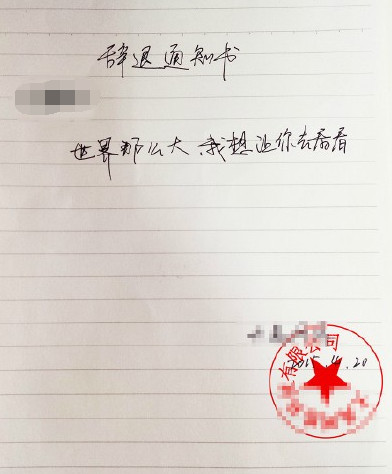 辞退通知书
世界那么大,我想让你去看看
有限公司
2015.4.20